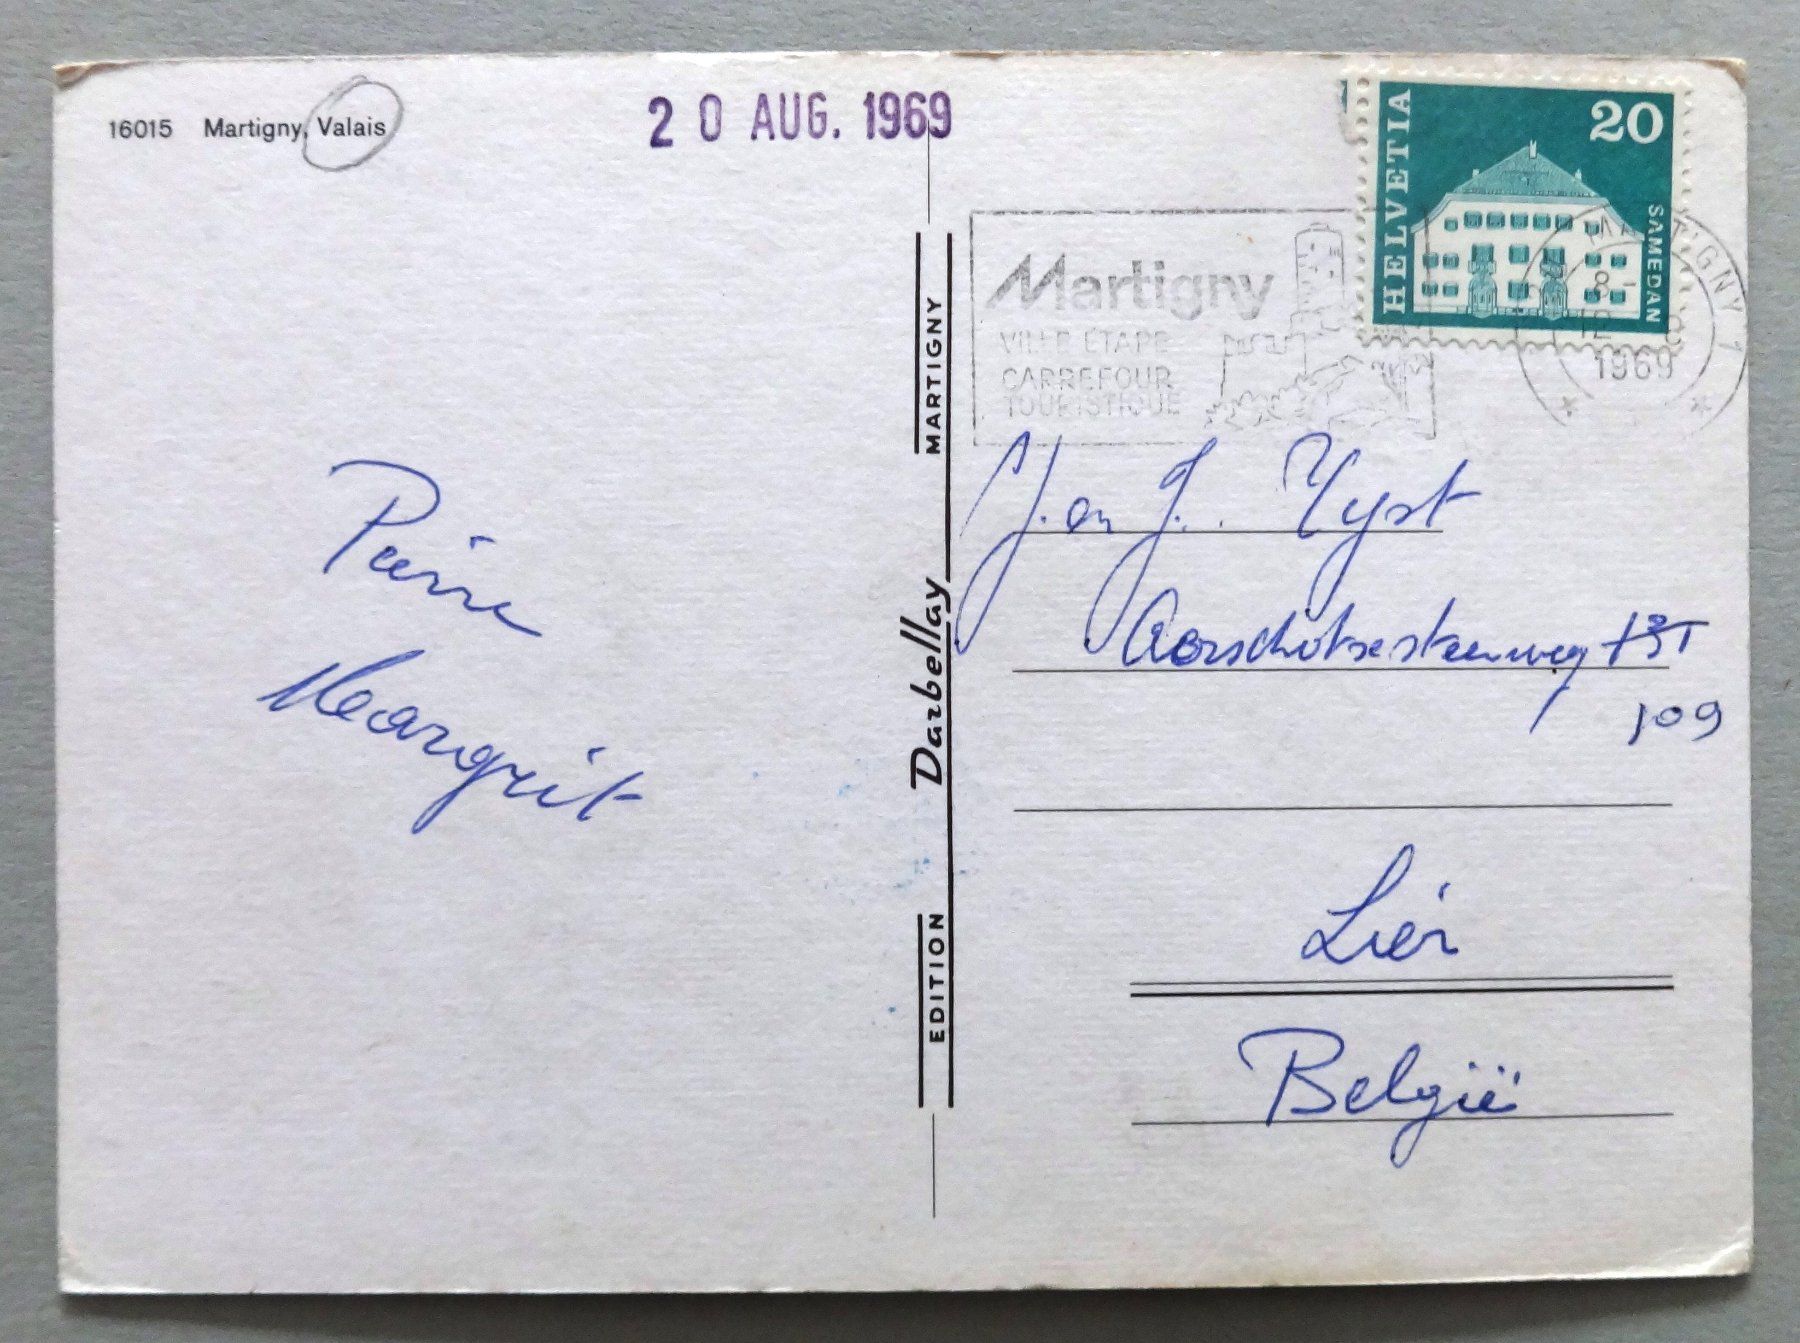 16015 Martigny, Valais
20 AUG. 1969
HELVETIA
20
SAMEDAN
Martigny
VILLE ETAPE
CARREFOUR
TOURISTIQUE
MARTIGNY 1
1969
Pierre
Margrit
EDITION Darbellay MARTIGNY
J. en J.
Aerschotsesteenweg
109
Lier
België